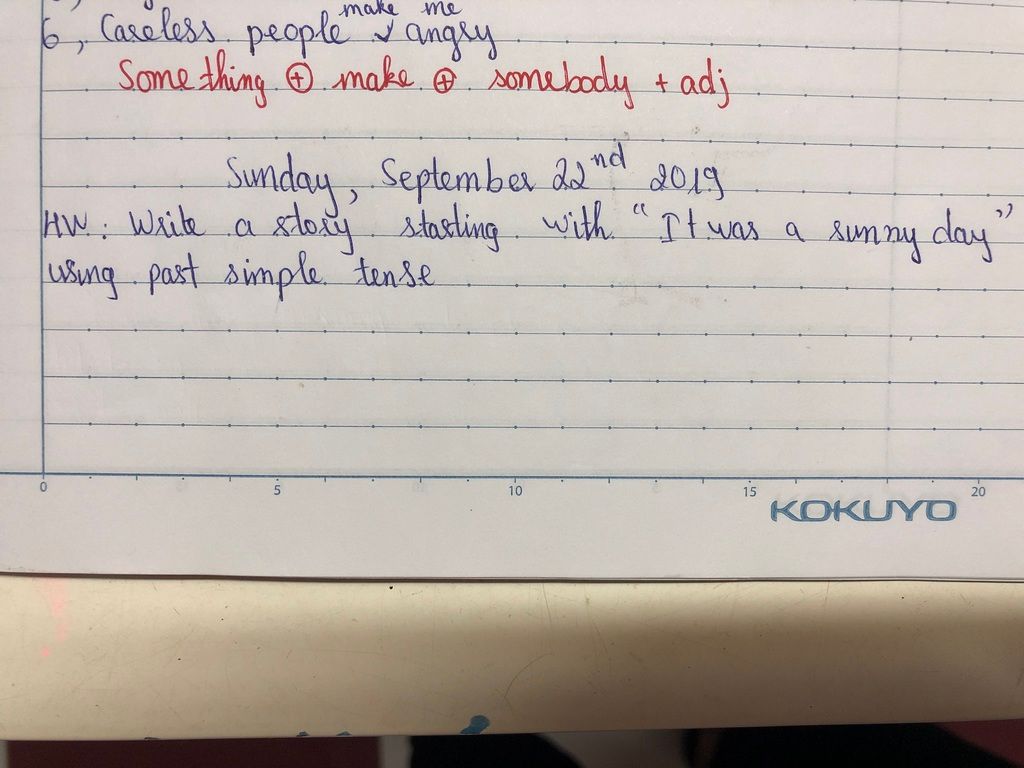 make me
6, Careless people ✓ angry
Something ⊕ make ⊕ somebody + adj
Sunday, September 22nd 2019
HW: Write a story starting with "It was a sunny day"
using past simple tense
0 5 10 15 20
KOKUYO